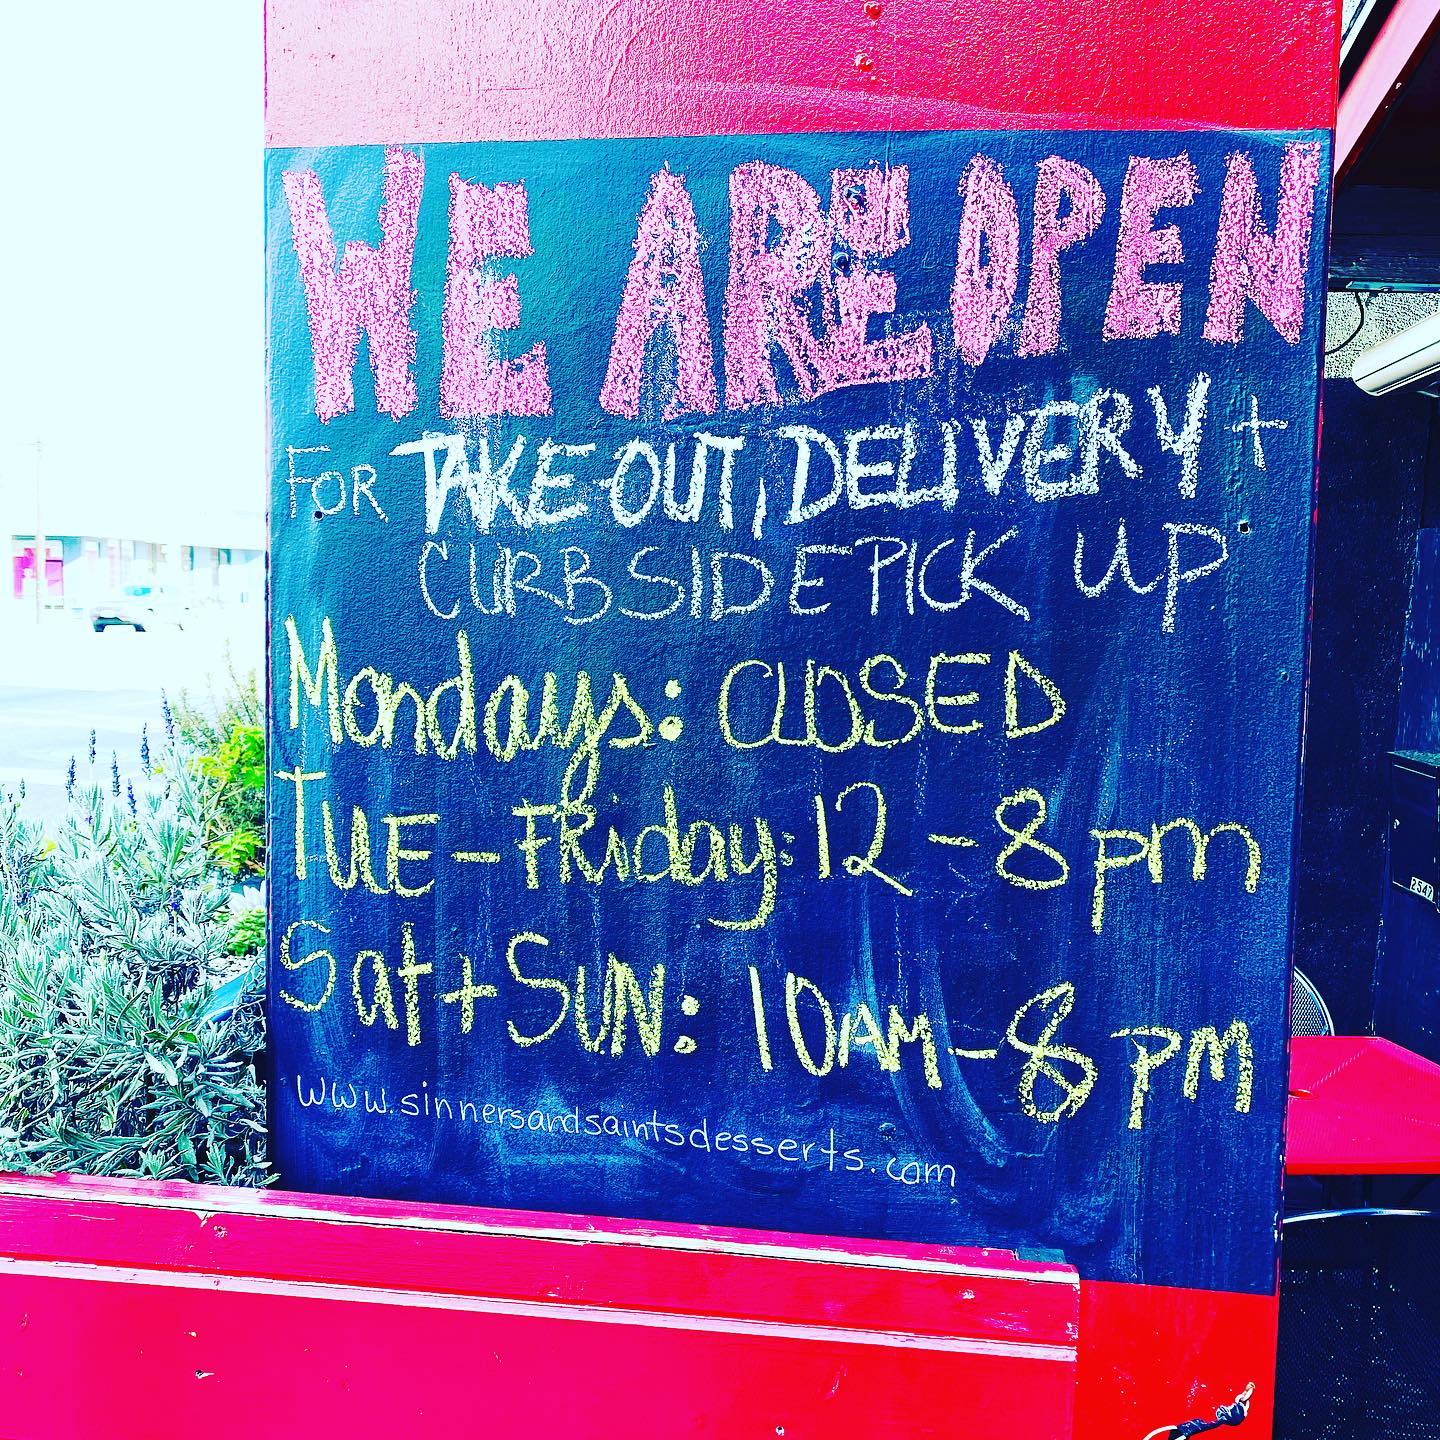 WE ARE OPEN
FOR TAKE-OUT, DELIVERY +
CURBSIDE PICK UP
Mondays: CLOSED
TUE - FRiday: 12 - 8pm
Sat + SUN: 10AM - 8PM
www.sinnersandsaintsdesserts.com
2547